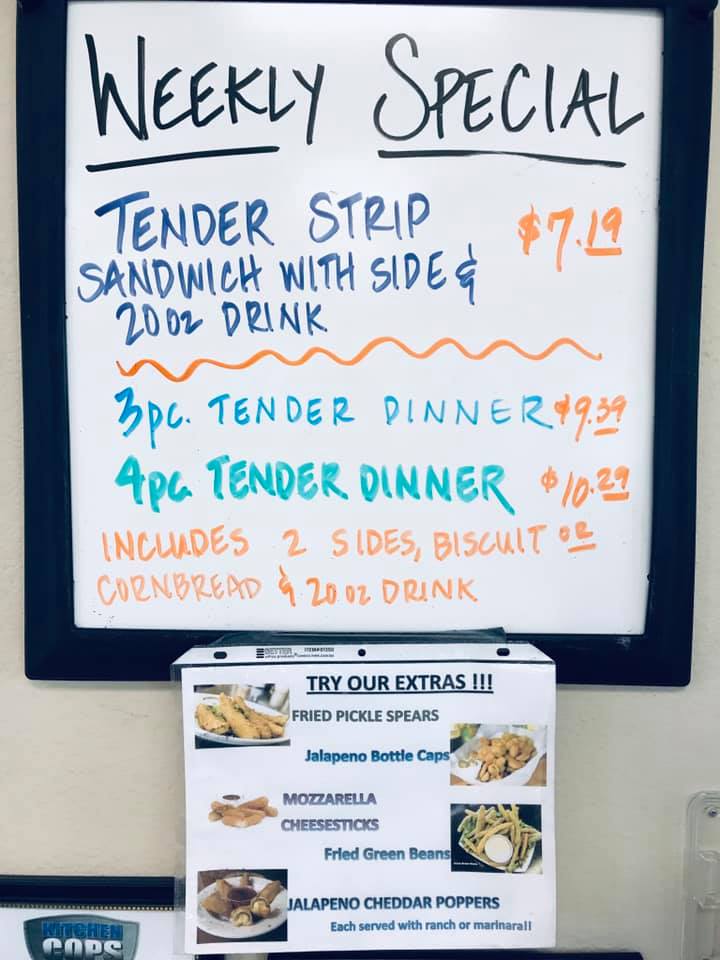 WEEKLY SPECIAL
TENDER STRIP $7.19
SANDWICH WITH SIDE &
20oz DRINK
3pc. TENDER DINNER $9.39
4pc. TENDER DINNER $10.29
INCLUDES 2 SIDES, BISCUIT OR
CORNBREAD & 20oz DRINK
BETTER
TRY OUR EXTRAS !!!
FRIED PICKLE SPEARS
Jalapeno Bottle Caps
MOZZARELLA
CHEESESTICKS
Fried Green Beans
JALAPENO CHEDDAR POPPERS
Each served with ranch or marinara!!
KITCHEN
COPS